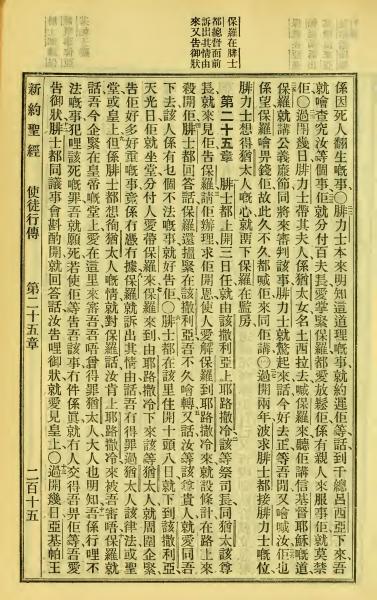 保羅在腓士
都總督面前
訴出其情由
來又告御狀
係因死人翻生嘅事○腓力士本來明知這道理嘅事就約遲佢等話到千總呂西亞下來吾
就噲查究汝等個事佢就分付百夫長愛掌緊保羅都愛放鬆佢係有親人來服事佢就莫禁
佢○過開幾日腓力士帶其夫人係猶太女名土西拉去喊保羅來聽佢講信基督耶穌嘅道
保羅就講公義廉節同將來審判該事腓力士就驚起來話今好去正等吾閒又噲喊汝佢也
係望保羅噲畀錢佢故此久不久都喊佢來同佢講○過開兩年波求腓士都接腓力士嘅位
腓力士想得猶太人嘅心就畱下保羅在監房
第二十五章 腓士都上開三日任就由該撒利亞上耶路撒冷該等祭司長同猶太該尊
長就來見佢告保羅請佢辦理求佢開恩使人愛解保羅到耶路撒冷來就設條計在路上來
殺開佢腓士都回答話保羅還搵緊在該撒利亞吾不久噲轉又話汝等該尊貴人就愛同吾
下去該人係有也個不法嘅事就好告佢○腓士都在該里住開十頭八日就下到該撒利亞
天光日佢就坐堂分付人愛帶保羅來保羅來到由耶路撒冷下來該等猶太人就周圍企緊
告佢好多好重嘅事竟係冇憑有據保羅就訴出其情由話吾冇得罪過猶太人該律法或聖
堂或皇上但係腓士都想徇猶太人嘅情就對保羅話汝肯上耶路撒冷來被吾審唔保羅就
話吾今企緊在皇帝嘅堂上愛在這里來審吾吾唔曾得罪猶太人大人也明知吾係行哩不
法嘅事犯哩該死嘅罪吾就願死若使佢等告吾該事冇件係眞就冇人交得吾畀佢等吾愛
告御狀腓士都同議事會斟酌開就回答話汝告哩御狀就愛見皇上○過開幾日亞基帕王
新約聖經 使徒行傳 第二十五章 二百十五